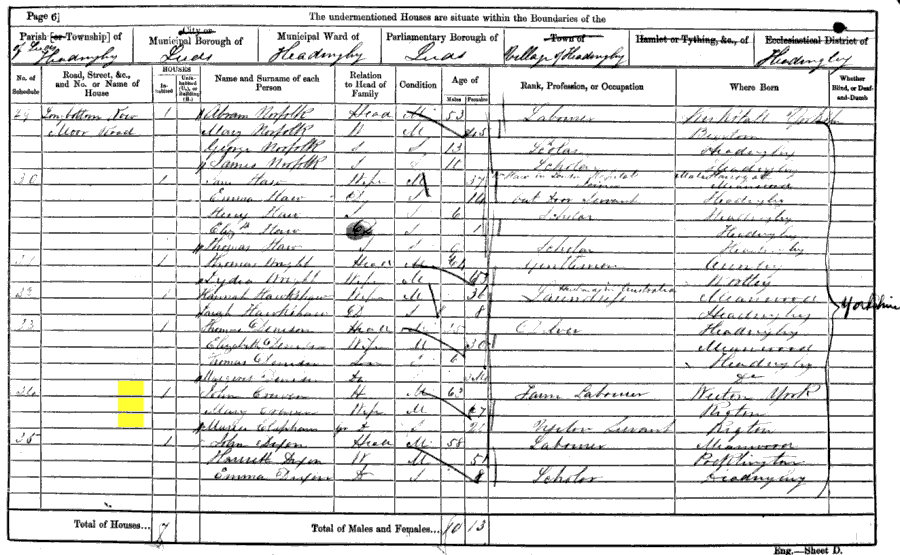 Page 6]
The undermentioned Houses are situate within the Boundaries of the
Parish [or Township] of Leeds Headingley
City or Municipal Borough of Leeds
Municipal Ward of Headingley
Parliamentary Borough of Leeds
Town of Village of Headingley
Hamlet or Tything, &c., of
Ecclesiastical District of Headingley
No. of Schedule
Road, Street, &c., and No. or Name of House
HOUSES
Inhabited
Uninhabited (U.), or Building (B.)
Name and Surname of each Person
Relation to Head of Family
Condition
Age of
Males
Females
Rank, Profession, or Occupation
Where Born
Whether Blind, or Deaf-and-Dumb
29 Longbottom Row 1 Abram Norfolk Head M 53 Labourer Kirkstall Yorkshire
Moor Road Mary Norfolk W M 45
George Norfolk S S 13 Scolar Headingley
James Norfolk S S 11 Scholar Headingley
30 1 Jane Haw Wife M 37 Meanwood
Emma Haw D S 14 out door Servant Headingley
Henry Haw S S 6 Scholar Headingley
Eliz'th Haw S 1 Headingley
Thomas Haw S S 9 Scholar Headingley
1 Thomas Wright Head M Gentleman
Lydia Wright Wife M 67 Wortley
Hannah Hawkshaw Wife M 36 Laundress Husband in Australia Meanwood
Sarah Hawkshaw D S 8 Headingley
1 Thomas Denison Head Headingley
Elizabeth Denison Wife M 30 Meanwood
Thomas Denison Son S 6 Headingley
Denison Da Do
1 John Craven H M 63 Farm Labourer Weeton York
Mary Craven Wife M 67 Rigton
Clapham S Servant Rigton
1 John Dixon Head M 58 Labourer Meanwood
Harriet Dixon W M 51 Pocklington
Emma Dixon D S 8 Scholar Headingley
Yorkshire
Total of Houses... 7
Total of Males and Females... 10 13
Eng.—Sheet D.